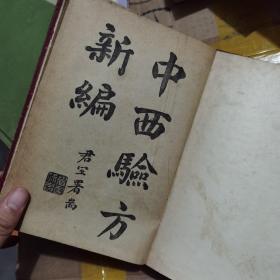 中西驗方
新編
君宜署耑